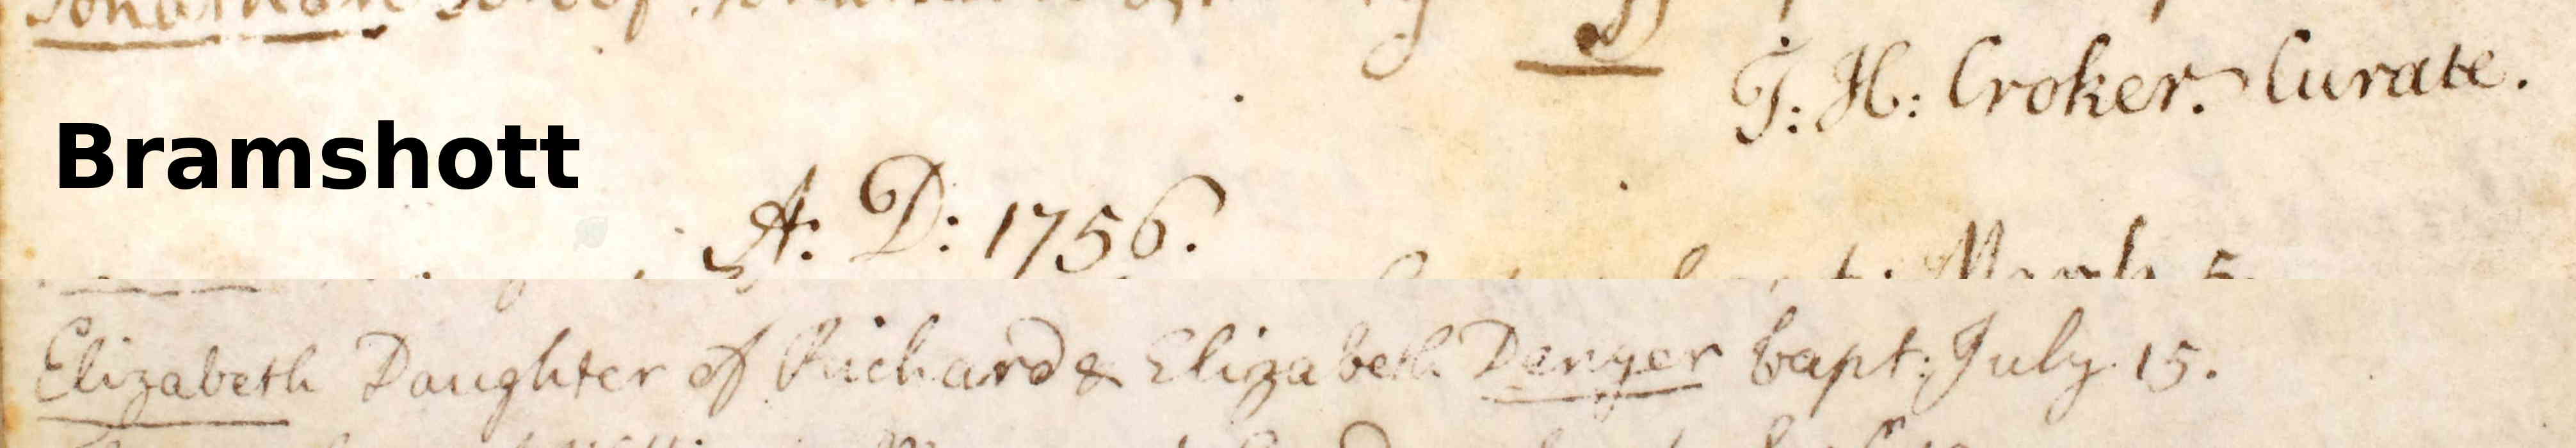 T: H: Croker. Curate.
Bramshott
A: D: 1756.
bapt: March 5.
Elizabeth Daughter of Richard & Elizabeth Denyer bapt: July 15.